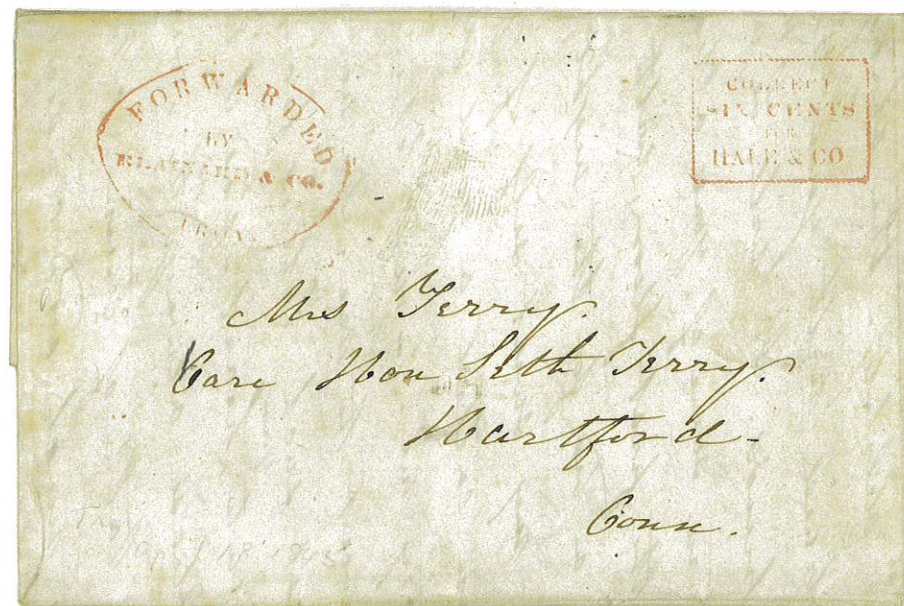 FORWARDED
BY
BRAINARD & CO.
TROY.
COLLECT
SIX CENTS
FOR
HALE & CO
Mrs Terry.
Care Hon Seth Terry.
Hartford-
Conn.